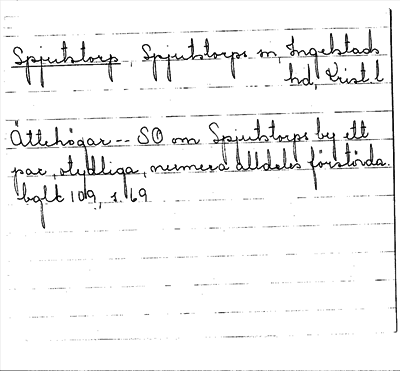 Spjutstorp, Spjutstorps sn, Ingelstads
hd, Krist. l
Ättehögar -- SO om Spjutstorps by ett
par, otydliga, numera alldeles förstörda.
bglt 109, s. 69